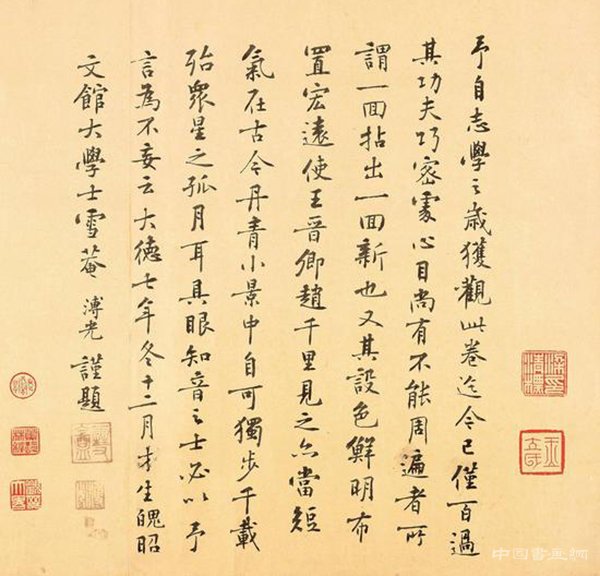 予自志學之歲獲觀此卷迄今已僅百過
其功夫巧密處心目尚有不能周遍者所
謂一面拈出一面新也又其設色鮮明布
置宏遠使王晉卿趙千里見之亦當短
氣在古今丹青小景中自可獨步千載
殆眾星之孤月耳具眼知音之士必以予
言為不妄云大德七年冬十二月才生魄昭
文館大學士雪菴溥光謹題
中国書畫網